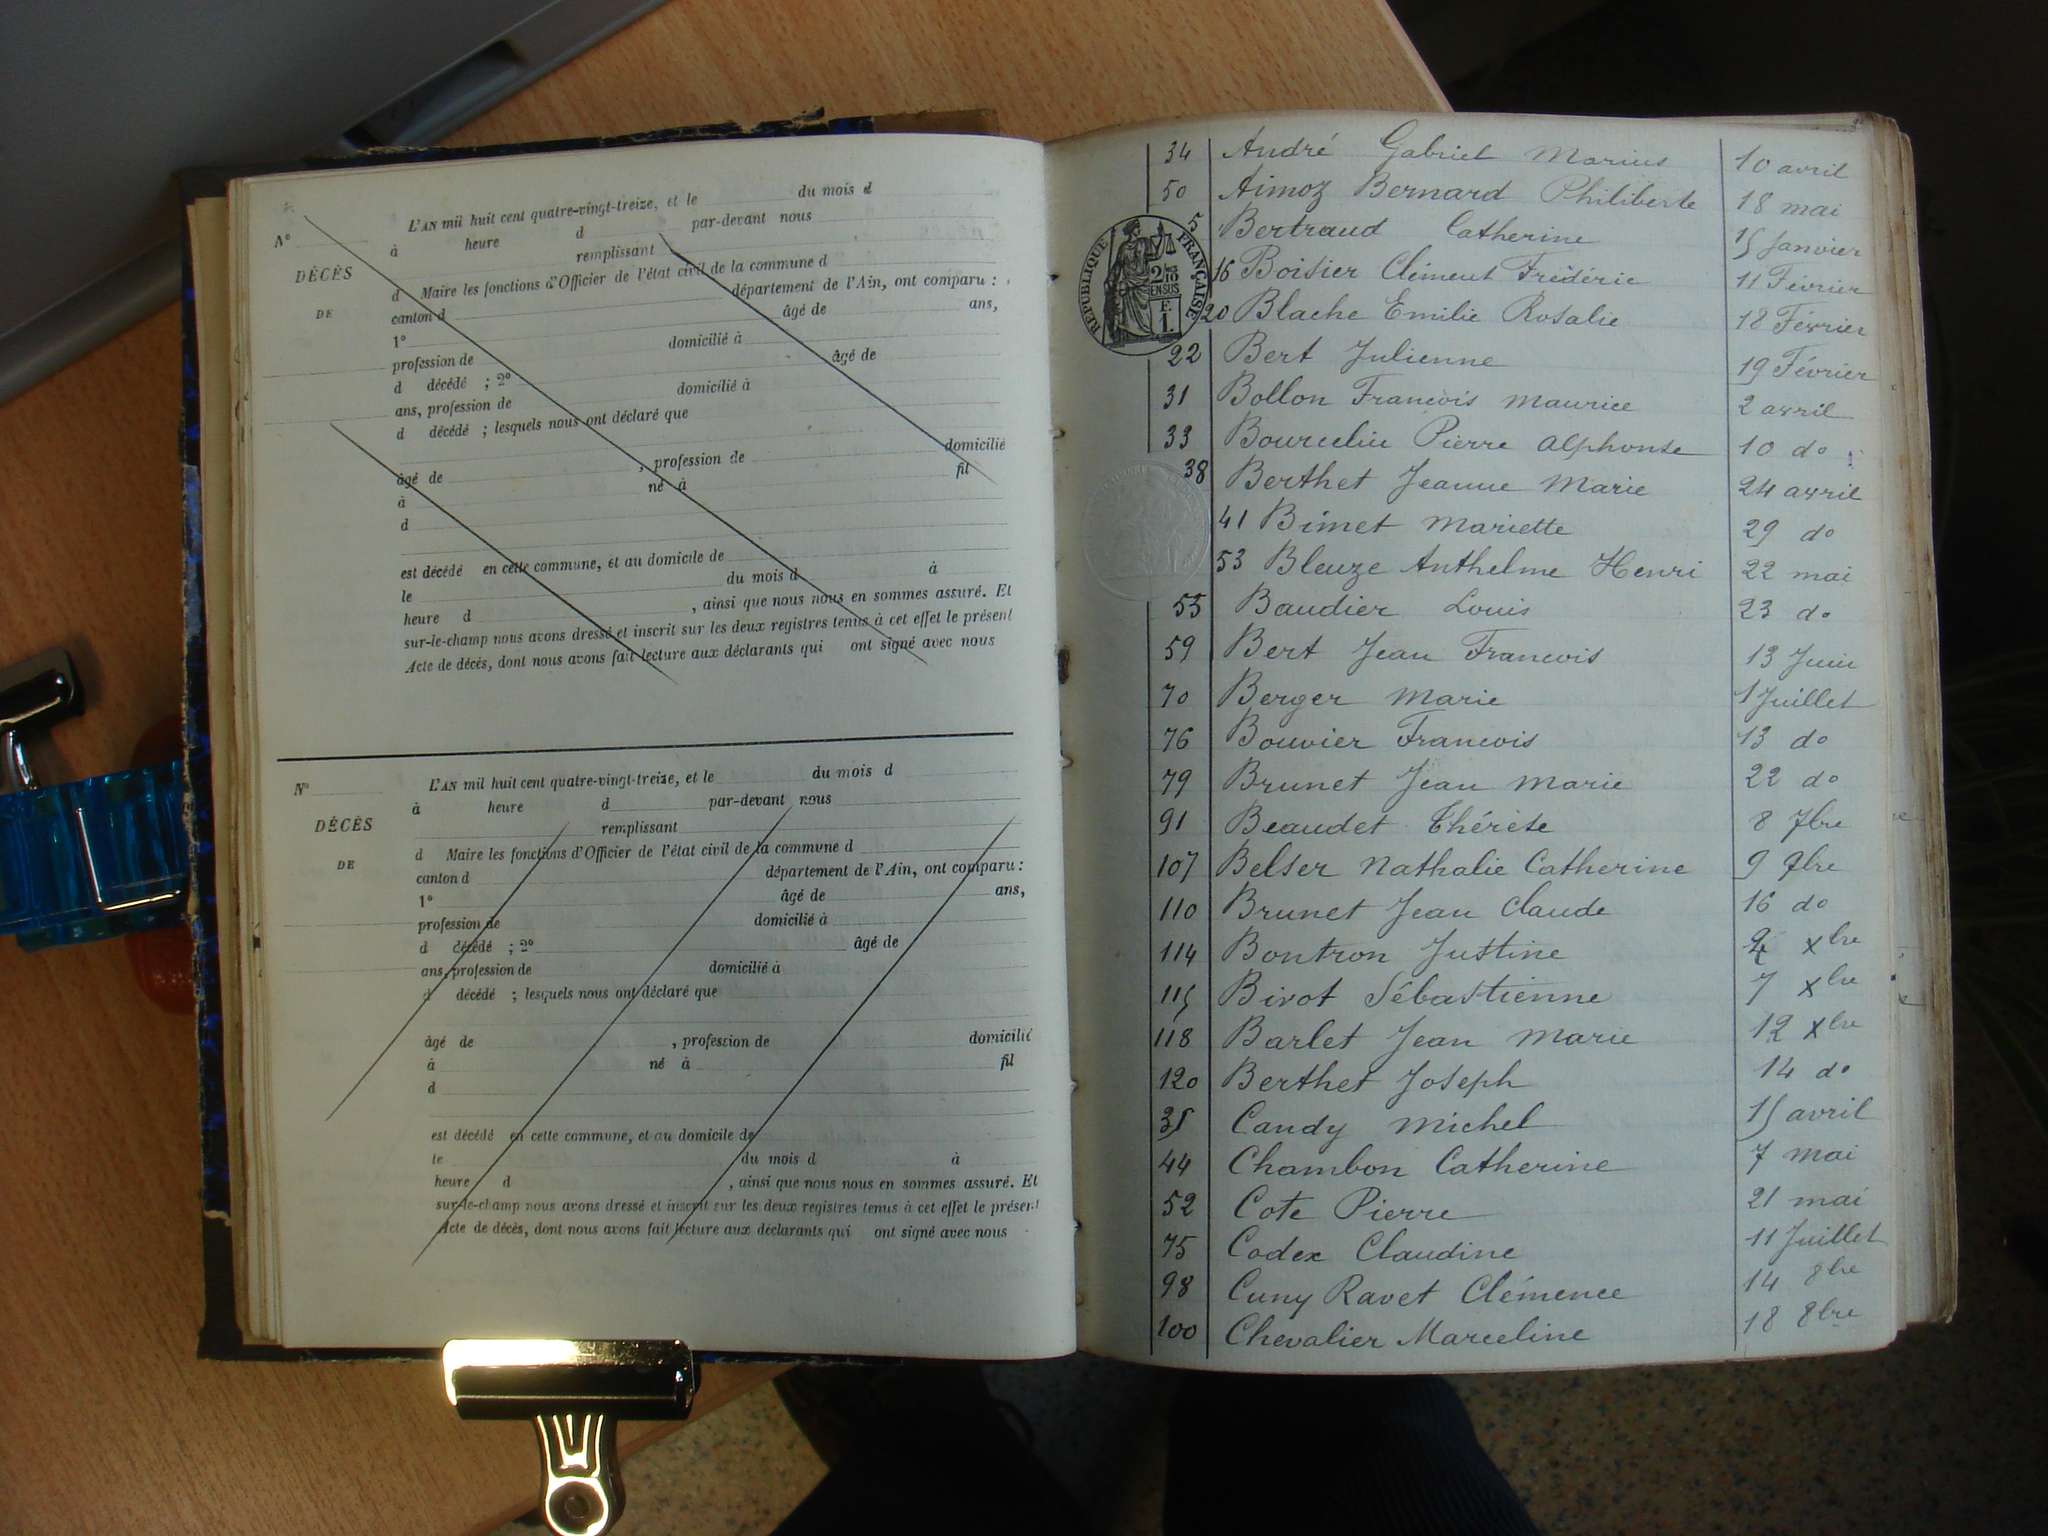 L'AN mil huit cent quatre-vingt-treize, et le du mois d
N° à heure d par-devant nous
DÉCÈS remplissant
d Maire les fonctions d'Officier de l'état civil de la commune d
DE canton d département de l'Ain, ont comparu :
1° âgé de ans,
profession de domicilié à
d décédé ; 2° âgé de
ans, profession de domicilié à
d décédé ; lesquels nous ont déclaré que
âgé de , profession de domicilié
à né à fil
d
est décédé en cette commune, et au domicile de
le du mois d à
heure d , ainsi que nous nous en sommes assuré. Et
sur-le-champ nous avons dressé et inscrit sur les deux registres tenus à cet effet le présent
Acte de décès, dont nous avons fait lecture aux déclarants qui ont signé avec nous
N° L'AN mil huit cent quatre-vingt-treize, et le du mois d
à heure d par-devant nous
DÉCÈS remplissant
DE d Maire les fonctions d'Officier de l'état civil de la commune d
canton d département de l'Ain, ont comparu :
1° âgé de ans,
profession de domicilié à
d décédé ; 2° âgé de
ans, profession de domicilié à
d décédé ; lesquels nous ont déclaré que
âgé de , profession de domicilié
à né à fil
d
est décédé en cette commune, et au domicile de
le du mois d à
heure d , ainsi que nous nous en sommes assuré. Et
sur-le-champ nous avons dressé et inscrit sur les deux registres tenus à cet effet le présent
Acte de décès, dont nous avons fait lecture aux déclarants qui ont signé avec nous
RÉPUBLIQUE FRANÇAISE
2/10 EN SUS
E L
34 André Gabriel Marius 10 avril
50 Aimoz Bernard Philiberte 18 mai
5 Bertraud Catherine 15 Janvier
16 Boisier Clément Frédéric 11 Février
20 Blache Emilie Rosalie 18 Février
22 Bert Julienne 19 Février
31 Bollon Francois Maurice 2 avril
33 Bourcelin Pierre Alphonse 10 do
38 Berthet Jeanne Marie 24 avril
41 Bimet Mariette 29 do
53 Bleuze Anthelme Henri 22 mai
55 Baudier Louis 23 do
59 Bert Jean Francois 13 Juin
70 Berger Marie 1 Juillet
76 Bouvier Francois 13 do
79 Brunet Jean Marie 22 do
91 Beaudet Thérèse 8 7bre
107 Belser Nathalie Catherine 9 9bre
110 Brunet Jean Claude 16 do
114 Bontron Justine xbre
115 Bivot Sébastienne 7 xbre
118 Barlet Jean Marie 12 xbre
120 Berthet Joseph 14 do
35 Candy Michel 15 avril
44 Chambon Catherine 7 mai
52 Cote Pierre 21 mai
75 Codex Claudine 11 Juillet
98 Cuny Ravet Clémence 14 8bre
100 Chevalier Marceline 18 8bre